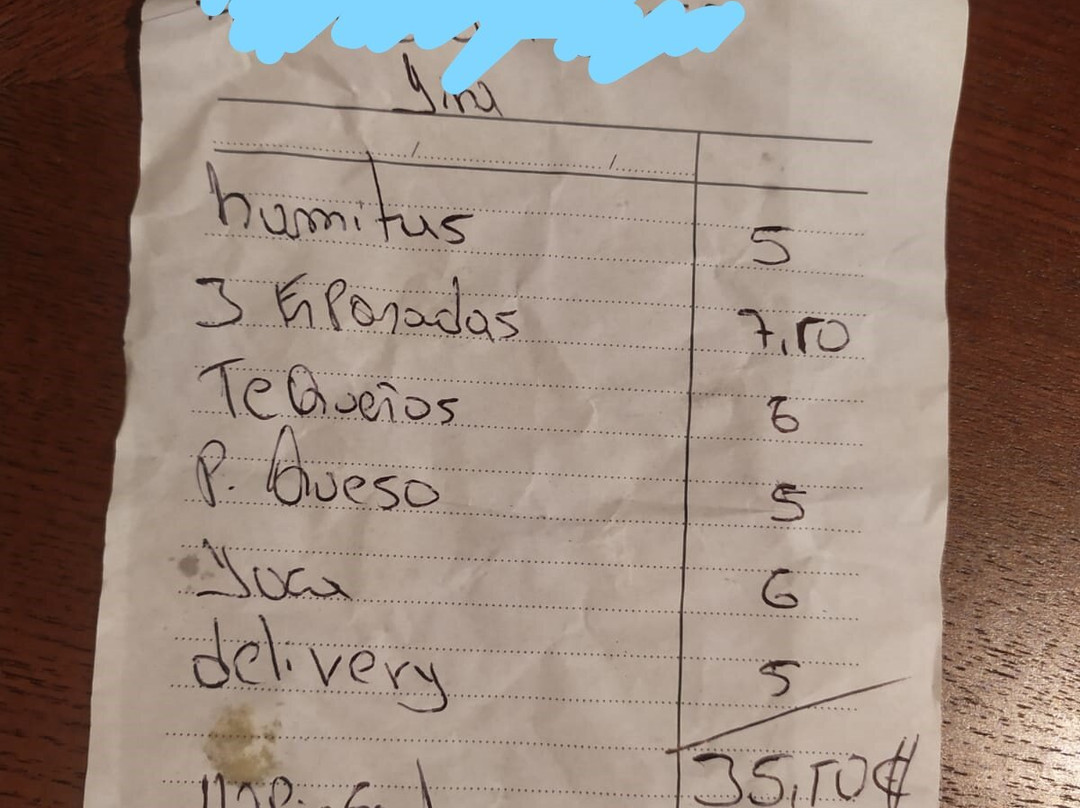 humitas 5
3 EmPanadas 7,50
TeQueños 6
P. Queso 5
Yuca 6
delivery 5
35,50€